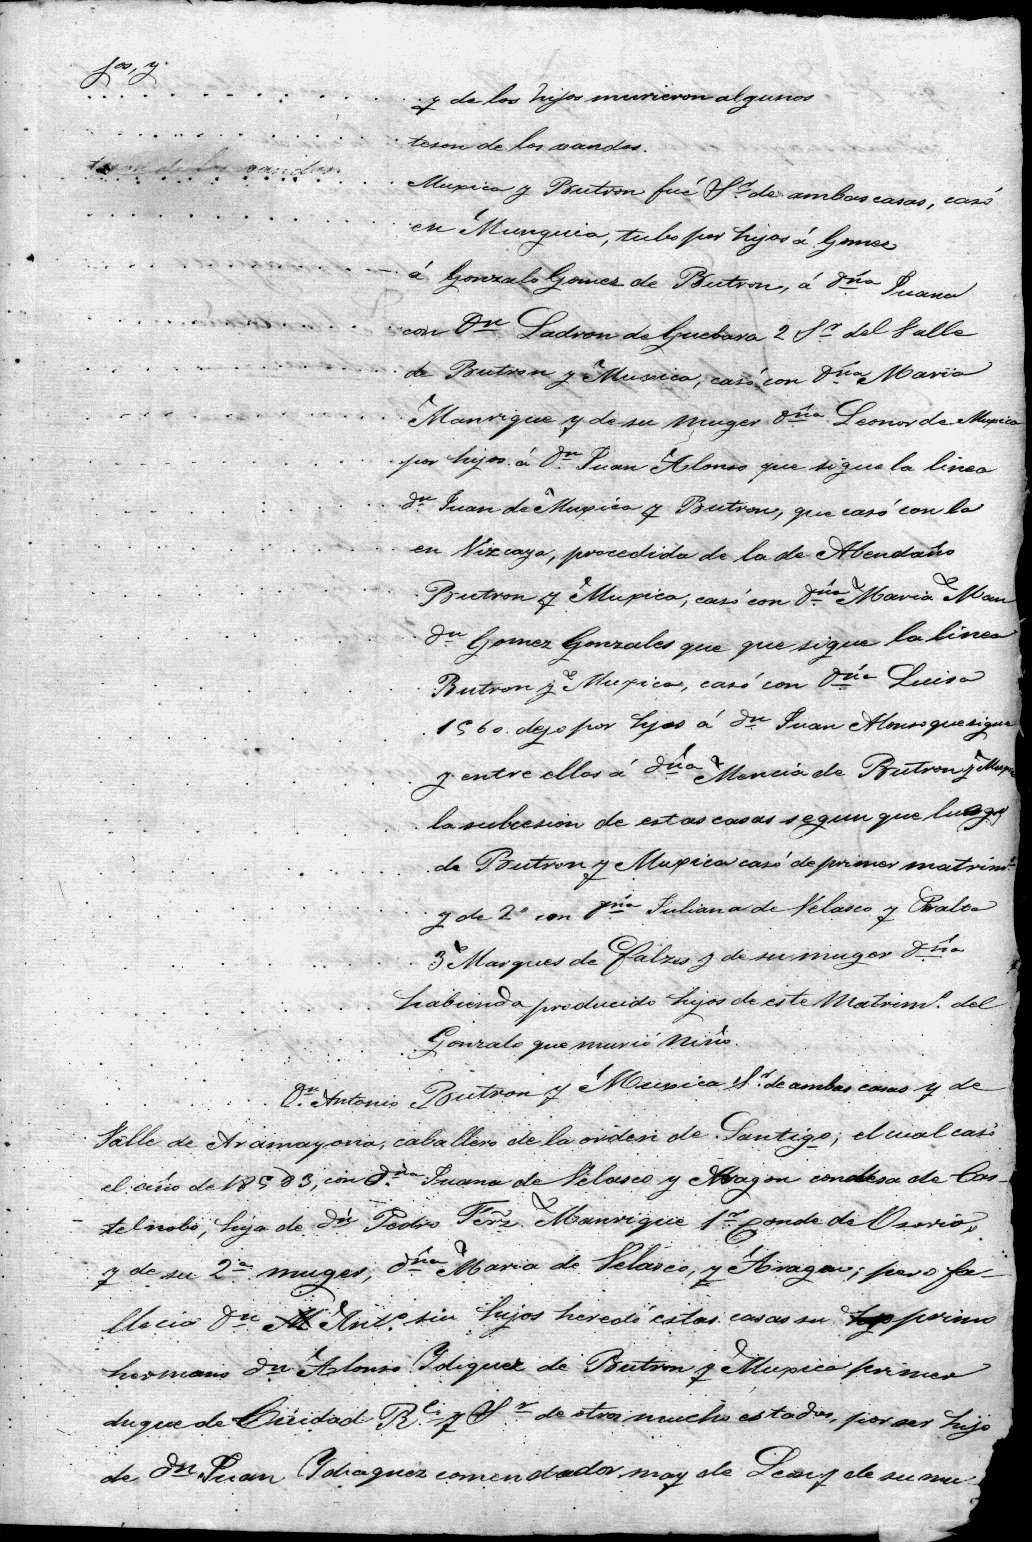 jos, y
y de los hijos murieron algunos
teson de los vandos.
teson de los vandos
Muxica y Butron fué Sr. de ambas casas, casó
en Munguia, tubo por hijos á Gomez
á Gonzalo Gomez de Butron, á dña Juana
con Dn Ladron de Guebara 2 Sr. del Valle
de Butron y Muxica, casó con dña Maria
Manrique y de su muger dña Leonor de Muxica
por hijos á dn Juan Alonso que sigue la linea
dn Juan de Muxica y Butron, que casó con la
en Vizcaya, procedida de la de Abendaño
Butron y Muxica, casó con dña Maria Man
dn Gomez Gonzales que que sigue la linea
Butron y Muxica, casó con dña Luisa
1560. dejo por hijos á dn Juan Alonso que sigue
y entre ellos á dña Mencia de Butron y Muxi
la subcesion de estas casas segun que luego
de Butron y Muxica casó de primer matrimo
y de 2º con dña Juliana de Velasco y Peralta
3 Marques de Falzes y de su muger dña
habienda producido hijos de este Matrimº. del
Gonzalo que murió niño.
Dn. Antonio Butron y Muxica Sr. de ambas casas y de
Valle de Aramayona, caballero de la orden de Santigo, el cual casó
el año de 1583, con dña Juana de Velasco y Aragon condesa de Cas-
telnobo, hija de dn Pedro Ferrz. Manrique 1r. conde de Osorio,
y de su 2ª muger, dña Maria de Velasco, y Aragon; pero fa-
llecio dn Antº. sin hijos heredó estas casas su primo
hermano dn Alonso Ydiquez de Butron y Muxica primer
duque de Ciudad Rl. y Sr de otros muchos estados, por ser hijo
de dn Juan Ydiaquez comendador may de Leon y de su mu